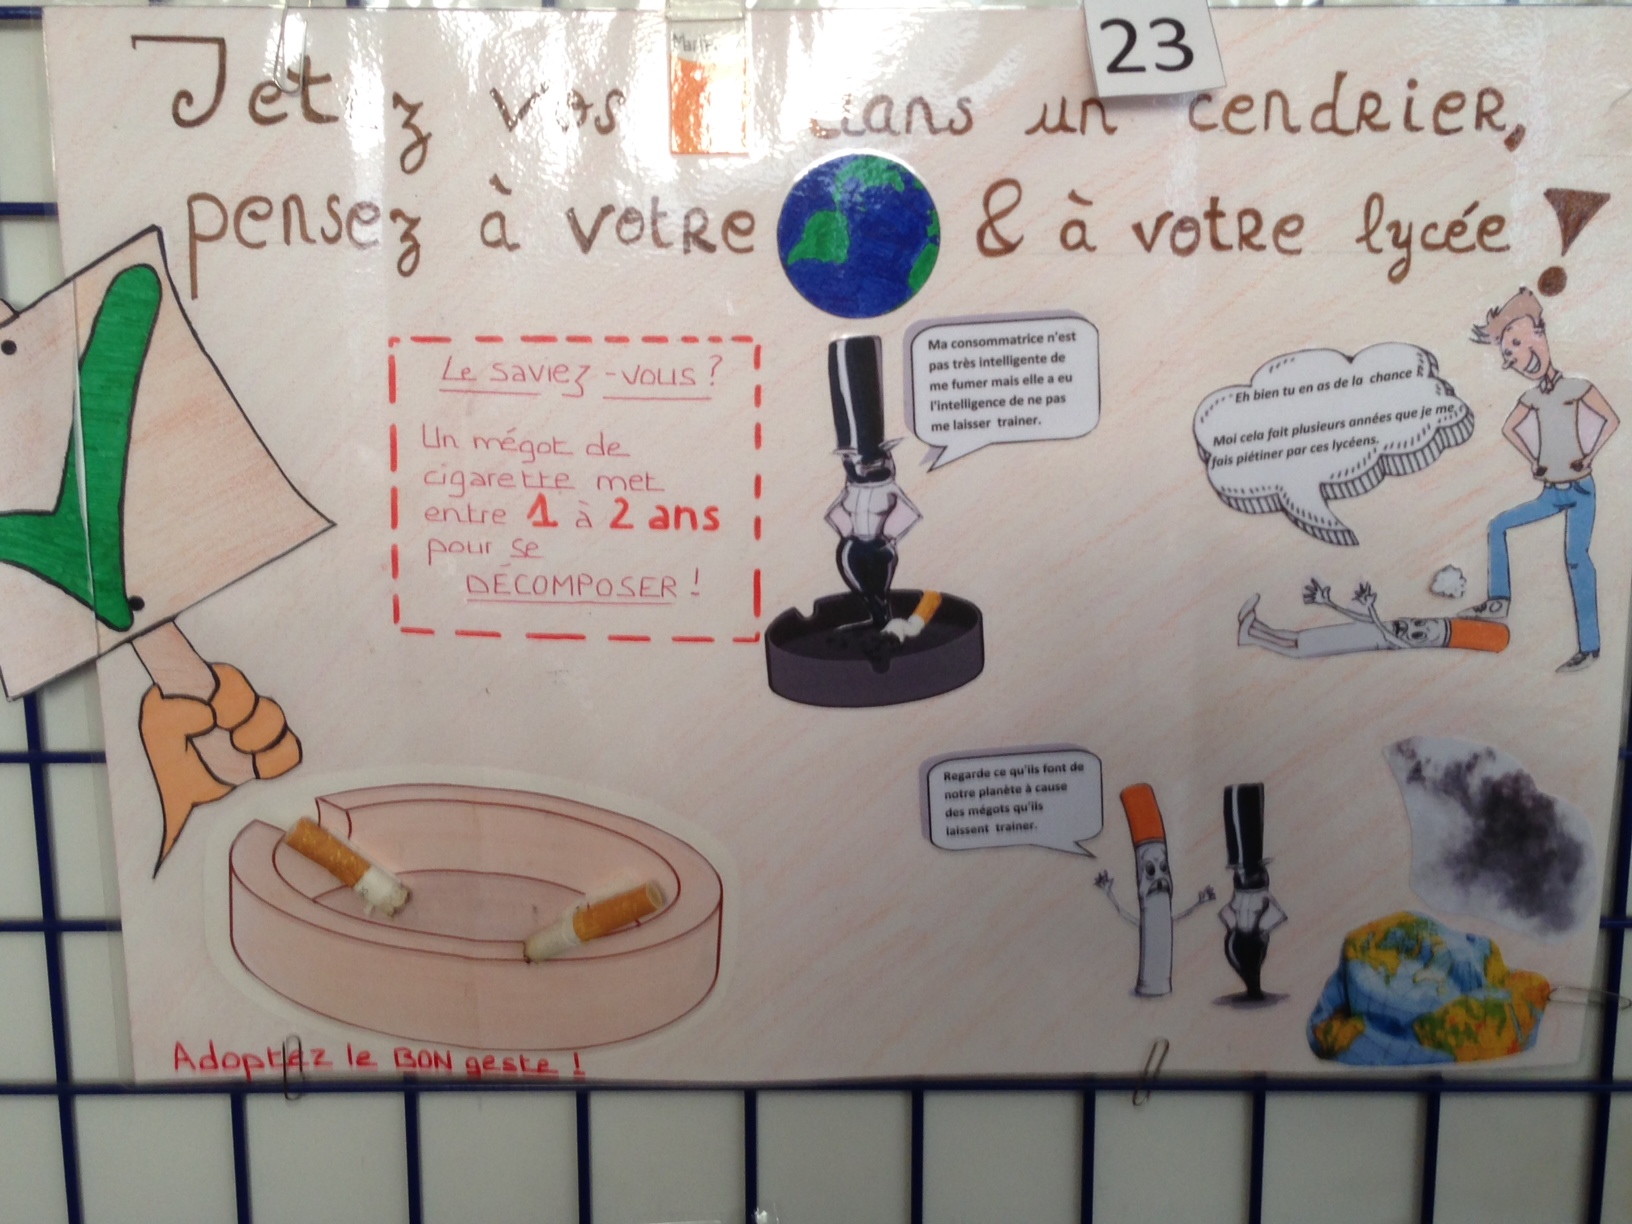 23
Jetez vos dans un cendrier,
pensez à votre & à votre lycée !
Le saviez-vous ?
Un mégot de
cigarette met
entre 1 à 2 ans
pour se
DÉCOMPOSER !
Ma consommatrice n'est
pas très intelligente de
me fumer mais elle a eu
l'intelligence de ne pas
me laisser trainer.
Eh bien tu en as de la chance !
Moi cela fait plusieurs années que je me
fais piétiner par ces lycéens.
Regarde ce qu'ils font de
notre planète à cause
des mégots qu'ils
laissent trainer.
Adoptez le BON geste !